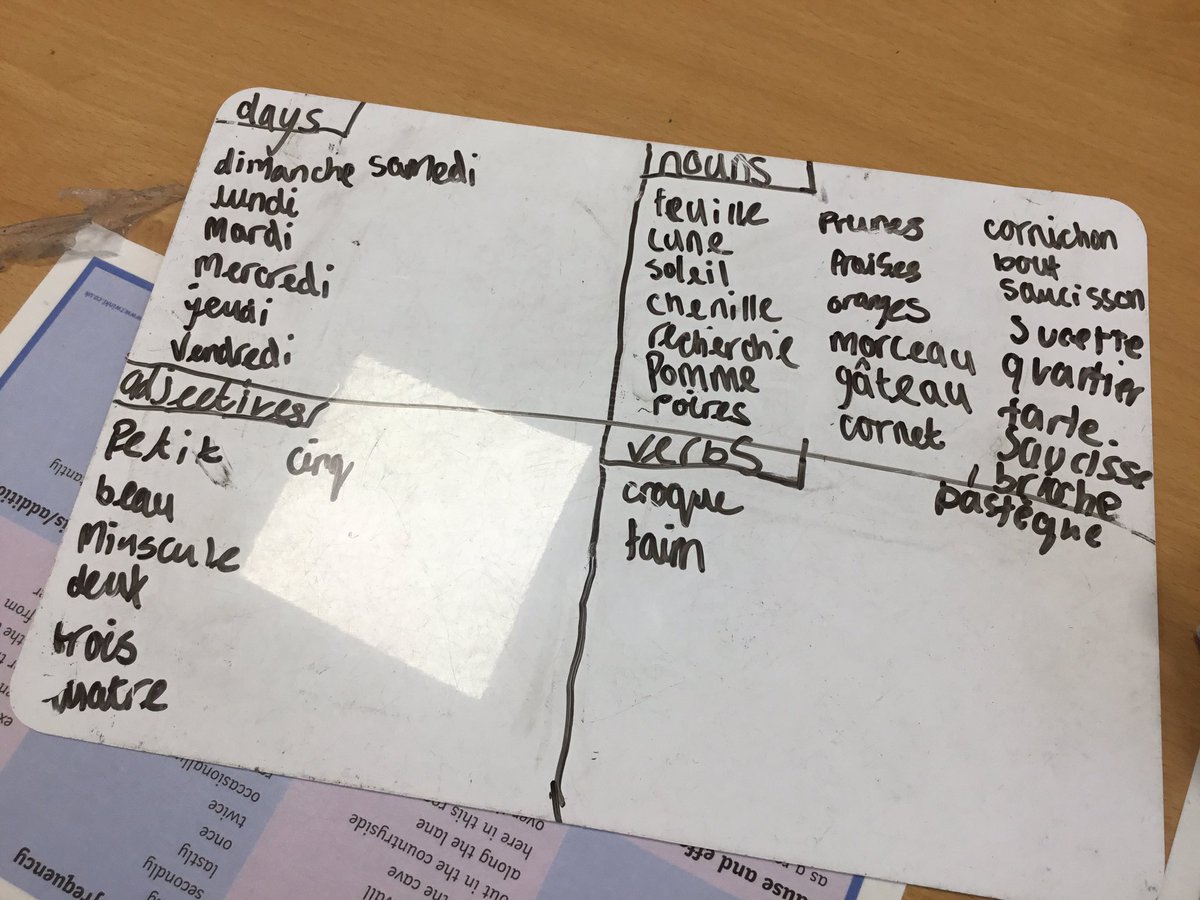 days
dimanche samedi
lundi
mardi
mercredi
jeudi
vendredi
nouns
feuille
lune
soleil
chenille
recherche
pomme
poires
prunes
fraises
oranges
morceau
gâteau
cornet
cornichon
bout
saucisson
sucette
quartier
tarte.
saucisse
brioche
pastèque
adjectives
petit cinq
beau
minscule
deux
trois
quatre
verbs
croque
faim
www.twinkl.co.uk
twice
once
lastly
secondly
frequency
out in the countryside
along the lane
the cave